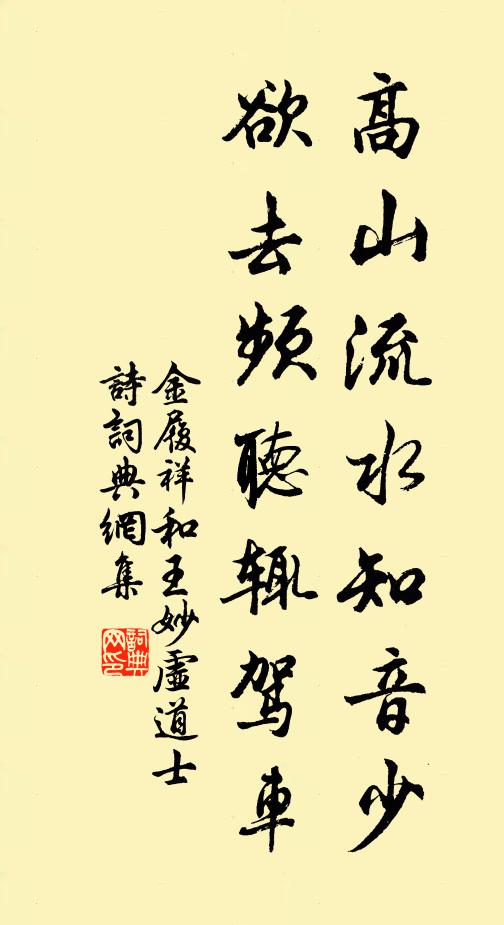 高山流水知音少
欲去頻聽輒駕車
金履祥和王妙虛道士
詩詞典網集
詞典
网印